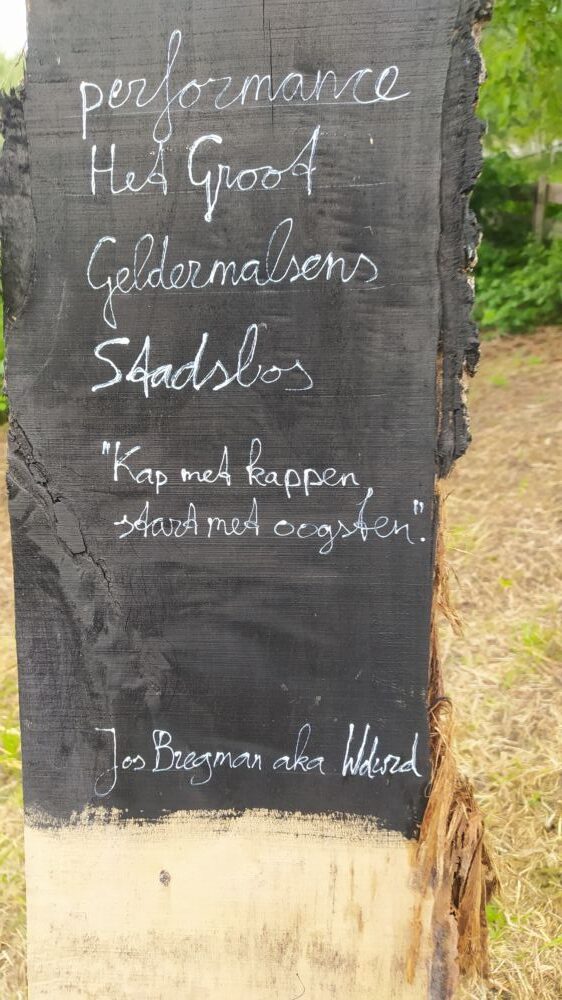 performance
Het Groot
Geldermalsens
Stadsbos
"Kap met kappen,
start met oogsten."
Jos Bregman aka